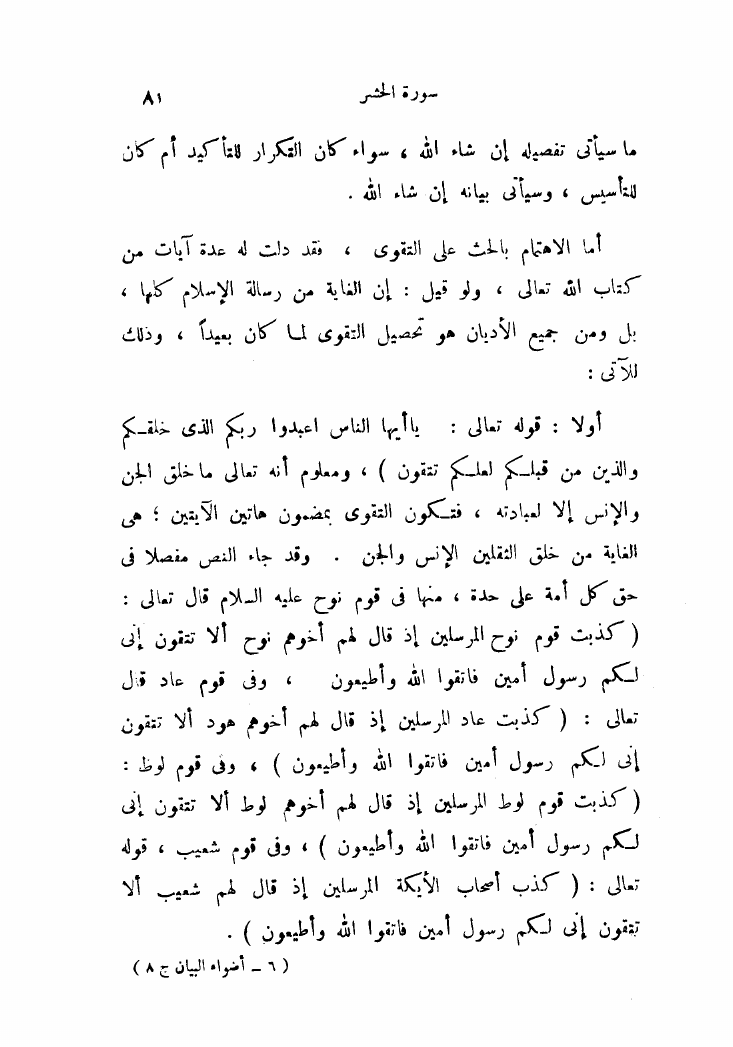 سورة الحشر ٨١
ما سيأتى تفصيله إن شاء الله ، سواء كان التكرار للتأكيد أم كان
للتأسيس ، وسيأتى بيانه إن شاء الله .
أما الاهتمام بالحث على التقوى ، فقد دلت له عدة آيات من
كتاب الله تعالى ، ولو قيل : إن الغاية من رسالة الإسلام كلها ،
بل ومن جميع الأديان هو تحصيل التقوى لما كان بعيداً ، وذلك
للآتى :
أولا : قوله تعالى : ياأيها الناس اعبدوا ربكم الذى خلقكم
والذين من قبلكم لعلكم تتقون ) ، ومعلوم أنه تعالى ما خلق الجن
والإنس إلا لعبادته ، فتكون التقوى بمضمون هاتين الآيتين ؛ هى
الغاية من خلق الثقلين الإنس والجن . وقد جاء النص مفصلا فى
حق كل أمة على حدة ، منها فى قوم نوح عليه السلام قال تعالى :
( كذبت قوم نوح المرسلين إذ قال لهم أخوهم نوح ألا تتقون إنى
لكم رسول أمين فاتقوا الله وأطيعون ، وفى قوم عاد قال
تعالى : ( كذبت عاد المرسلين إذ قال لهم أخوهم هود ألا تتقون
إنى لكم رسول أمين فاتقوا الله وأطيعون ) ، وفى قوم لوط :
( كذبت قوم لوط المرسلين إذ قال لهم أخوهم لوط ألا تتقون إنى
لكم رسول أمين فاتقوا الله وأطيعون ) ، وفى قوم شعيب ، قوله
تعالى : ( كذب أصحاب الأيكة المرسلين إذ قال لهم شعيب ألا
تتقون إنى لكم رسول أمين فاتقوا الله وأطيعون ) .
( ٦ – أضواء البيان ج ٨ )